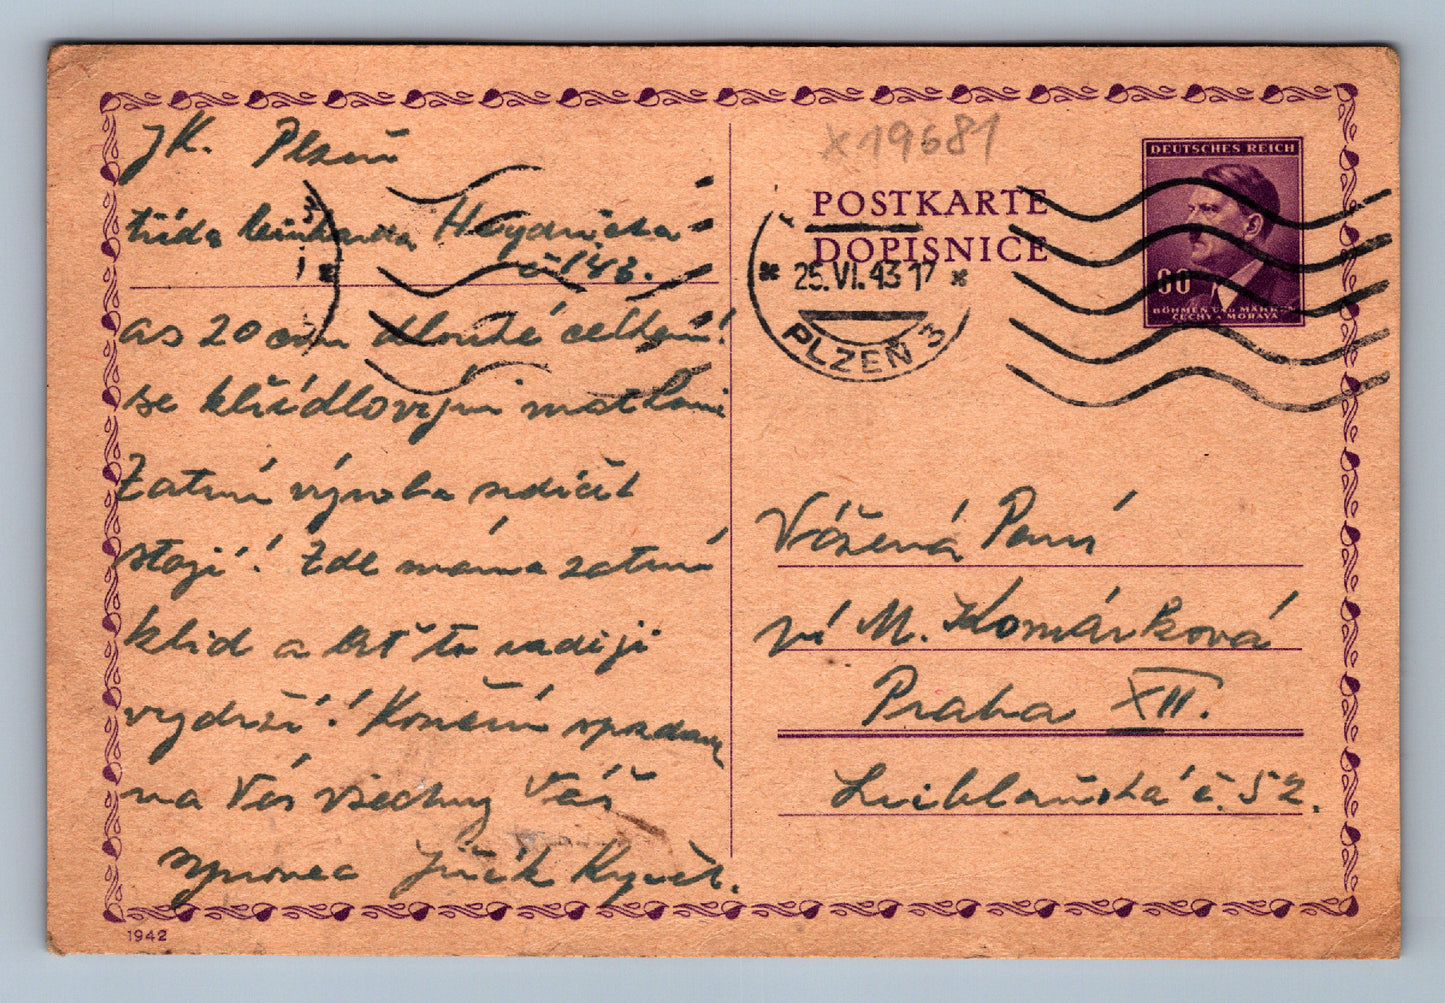 JK. Plzeň
třída Reinharda Heydricha
č 148.
as 20 cm dlouhé celkem!
se křídlovými matkami
Zatím výroba
stojí! Zde máme zatím
klid a ať to raději
vydrží! Končím vzpomínám
na Vás všechny Váš
synovec Jiřík
1942
x19681
POSTKARTE
DOPISNICE
DEUTSCHES REICH
60
BÖHMEN UND MÄHREN
ČECHY A MORAVA
25.VI.43 17
PLZEŇ 3
Vážená Paní
pí M. Komárková
Praha XII.
Lublaňská č. 52.